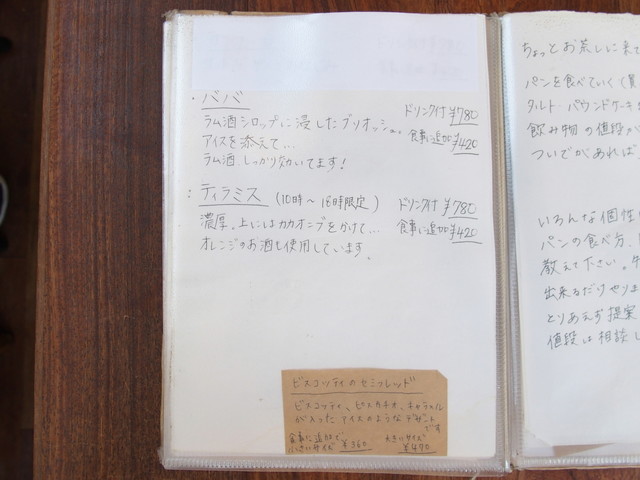 ・ババ
ドリンク付 ¥780
ラム酒シロップに浸したブリオッシュ。
食事に追加 ¥420
アイスを添えて…
ラム酒、しっかり効いてます!
・ティラミス (10時～18時限定)
ドリンク付 ¥780
濃厚。上にはカカオニブをかけて…
食事に追加 ¥420
オレンジのお酒も使用しています。
ビスコッティのセミフレッド
ビスコッティ、ピスタチオ、キャラメル
が入ったアイスのようなデザート
です
食事に追加で
小さいサイズ ¥360
大きいサイズ
¥490
ちょっとお茶しに来て
パンを食べていくて
タルト・パウンドケーキ
飲み物の値段が
ついでがあれば
いろんな個性
パンの食べ方、
教えて下さい。
出来るだけやり
とりあえず提案
値段は相談し